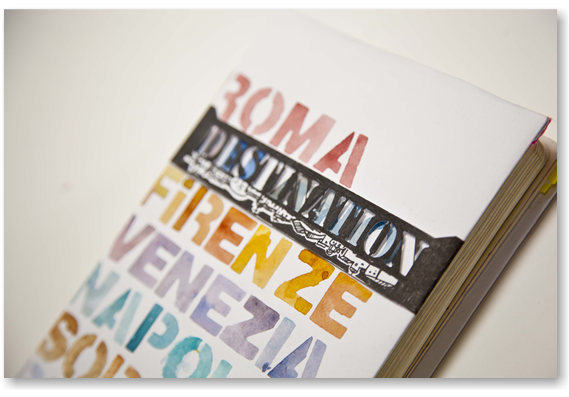 ROMA
DESTINATION
FiRENZE
VENEZIA
NAPOLI